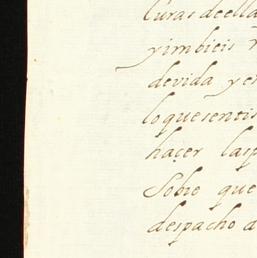 curas de ella
y imbieis
de vida y en
lo que sentis
haçer las p
Sobre que
despacho a